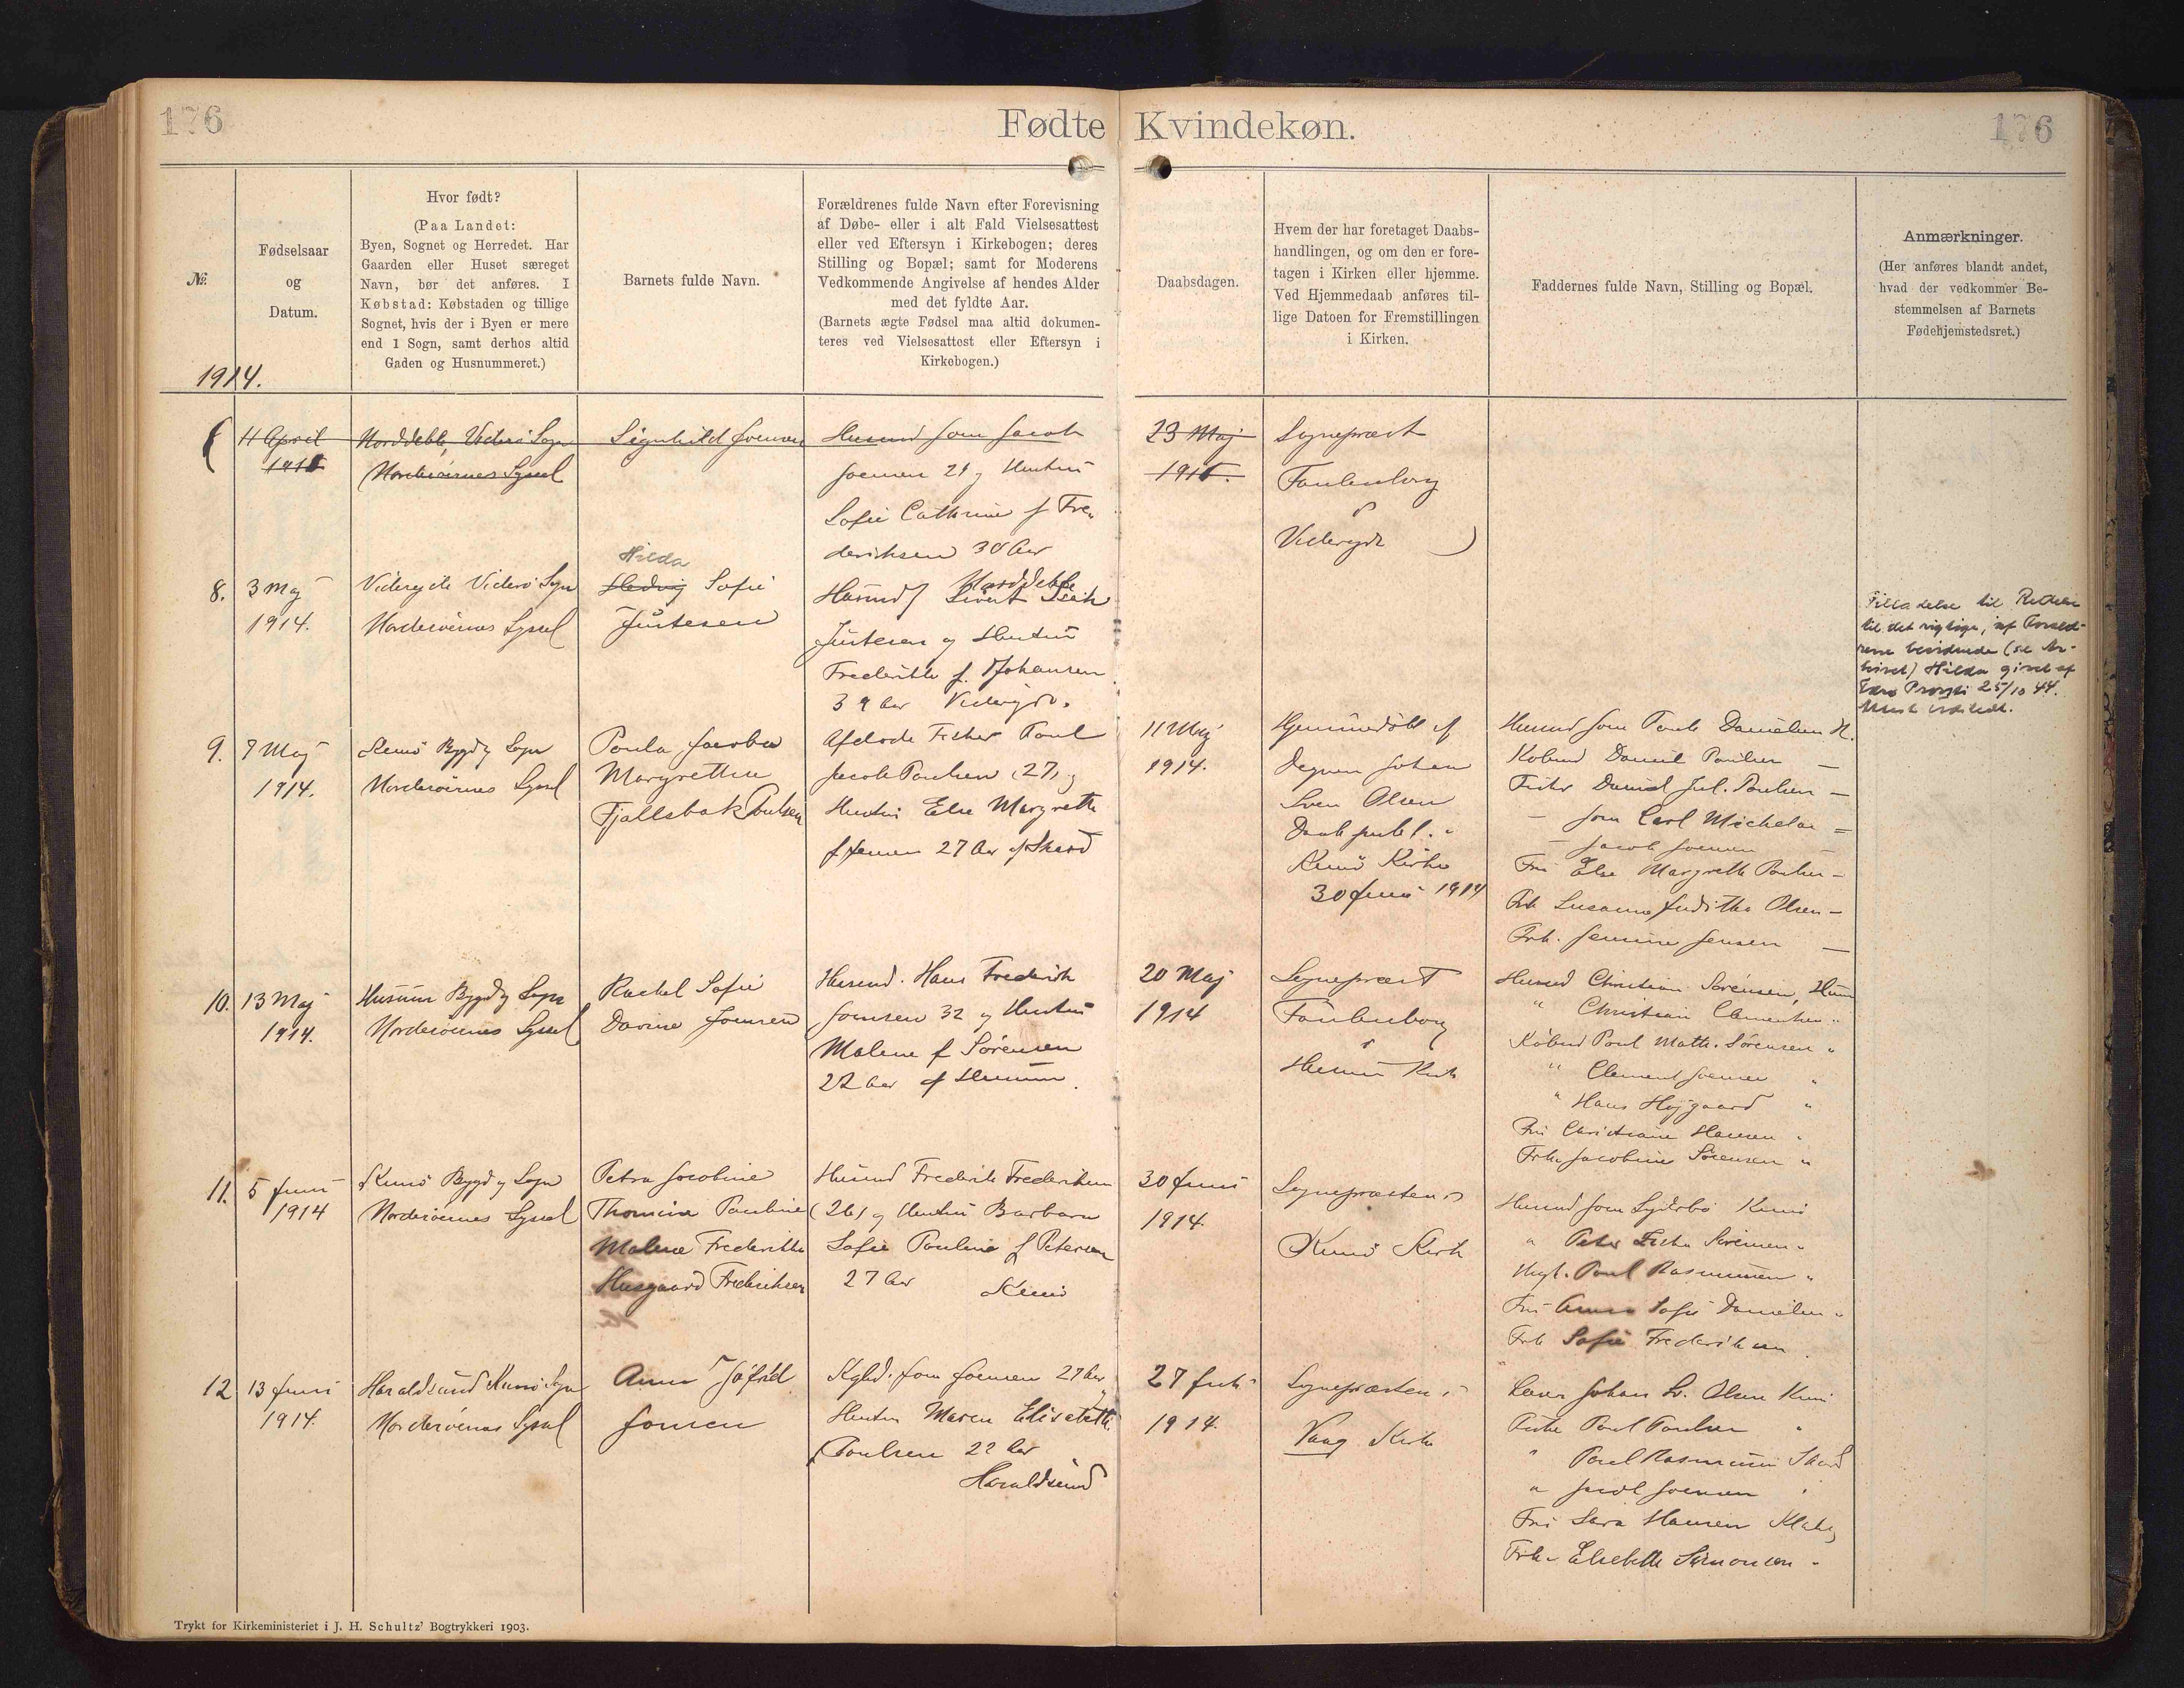 176
Fødte Kvindekøn.
176
№
Fødselsaar
og
Datum.
Hvor født?
(Paa Landet:
Byen, Sognet og Herredet. Har
Gaarden eller Huset særeget
Navn, bør det anføres. I
Købstad: Købstaden og tillige
Sognet, hvis der i Byen er mere
end 1 Sogn, samt derhos altid
Gaden og Husnummeret.)
Barnets fulde Navn.
Forældrenes fulde Navn efter Forevisning
af Døbe- eller i alt Fald Vielsesattest
eller ved Eftersyn i Kirkebogen; deres
Stilling og Bopæl; samt for Moderens
Vedkommende Angivelse af hendes Alder
med det fyldte Aar.
(Barnets ægte Fødsel maa altid dokumen-
teres ved Vielsesattest eller Eftersyn i
Kirkebogen.)
Daabsdagen.
Hvem der har foretaget Daabs-
handlingen, og om den er fore-
tagen i Kirken eller hjemme.
Ved Hjemmedaab anføres til-
lige Datoen for Fremstillingen
i Kirken.
Faddernes fulde Navn, Stilling og Bopæl.
Anmærkninger.
(Her anføres blandt andet,
hvad der vedkommer Be-
stemmelsen af Barnets
Fødehjemstedsret.)
1914.
11 April
Norddeble, Viderø Sogn
Norderøernes Syssel
Signhild Joensen
Husmd Joen Jacob
Joensen 29 og Hustru
Sofie Cathrine f Fre-
deriksen 30 Aar
Norddeble
23 Maj
Sognepræst
Viderejde
8.
3 Maj
1914.
Viderejde Viderø Sogn
Norderøernes Syssel
Hilda
Hedvig Sofie
Justesen
Husmd Sivert Isak
Justesen og Hustru
Frederikke f. Johansen
39 Aar Viderejde.
Hilda givet af
25/10 44.
9.
7 Maj
1914.
Kunø Bygd og Sogn
Norderøernes Syssel
Paula Jacoba
Margretha
Fjallsbak Poulsen
Afdøde Fisker Poul
Jacob Poulsen (27) og
Hustru Else Margrethe
f Joensen 27 Aar af Skard
11 Maj
1914.
Hjemmedøbt af
Degnen Johan
Sven Olsen
Daab publ. i
Kunø Kirke
30 Juni 1914
Købmd Daniel Poulsen
Fisker Daniel Jul. Poulsen
Joen Carl Michelsen
Jacob Joensen
Fru Else Margrethe Poulsen
Frk Susanne Juditha Olsen
Frk. Jensine Jensen
10.
13 Maj
1914.
Husum Bygd og Sogn
Norderøernes Syssel
Rachel Sofie
Davine Joensen
Husmd. Hans Frederik
Joensen 32 og Hustru
Malene f Sørensen
22 Aar af Husum.
20 Maj
1914
Sognepræst
i
Husum Kirke
Husmd Christian Sørensen, Husum
" Christian Clementsen "
Købmd Poul Matth. Sørensen "
" Clement Joensen "
" Hans Højgaard "
Fru Christiane Hansen "
Frk. Jacobine Sørensen "
11.
5 Juni
1914
Kunø Bygd og Sogn
Norderøernes Syssel
Petra Jacobine
Thomine Pauline
Malene Frederikke
Husgaard Frederiksen
Husmd Frederik Frederiksen
(26) og Hustru Barbara
Sofie Pauline f Petersen
27 Aar Kunø
30 Juni
1914.
Sognepræsten i
Kunø Kirke
" Peter Sørensen "
Poul Rasmussen "
Fru Anna Sofie Danielsen "
Frk Sofie Frederiksen "
12
13 Juni
1914.
Haraldsund Kunø Sogn
Norderøernes Syssel
Anna Jófríd
Joensen
Joen Joensen 27 Aar
Hustru Maren Elisabeth
f Poulsen 22 Aar
Haraldsund
27 Juli
1914.
Sognepræsten i
Vaag Kirke
Lærer Johan Sv. Olsen Kunø
Fisker Poul Poulsen "
" Poul Rasmussen Skard
" Jacob Joensen "
Fru Sara Hansen
Frk. Elsebeth Simonsen "
Trykt for Kirkeministeriet i J. H. Schultz' Bogtrykkeri 1903.